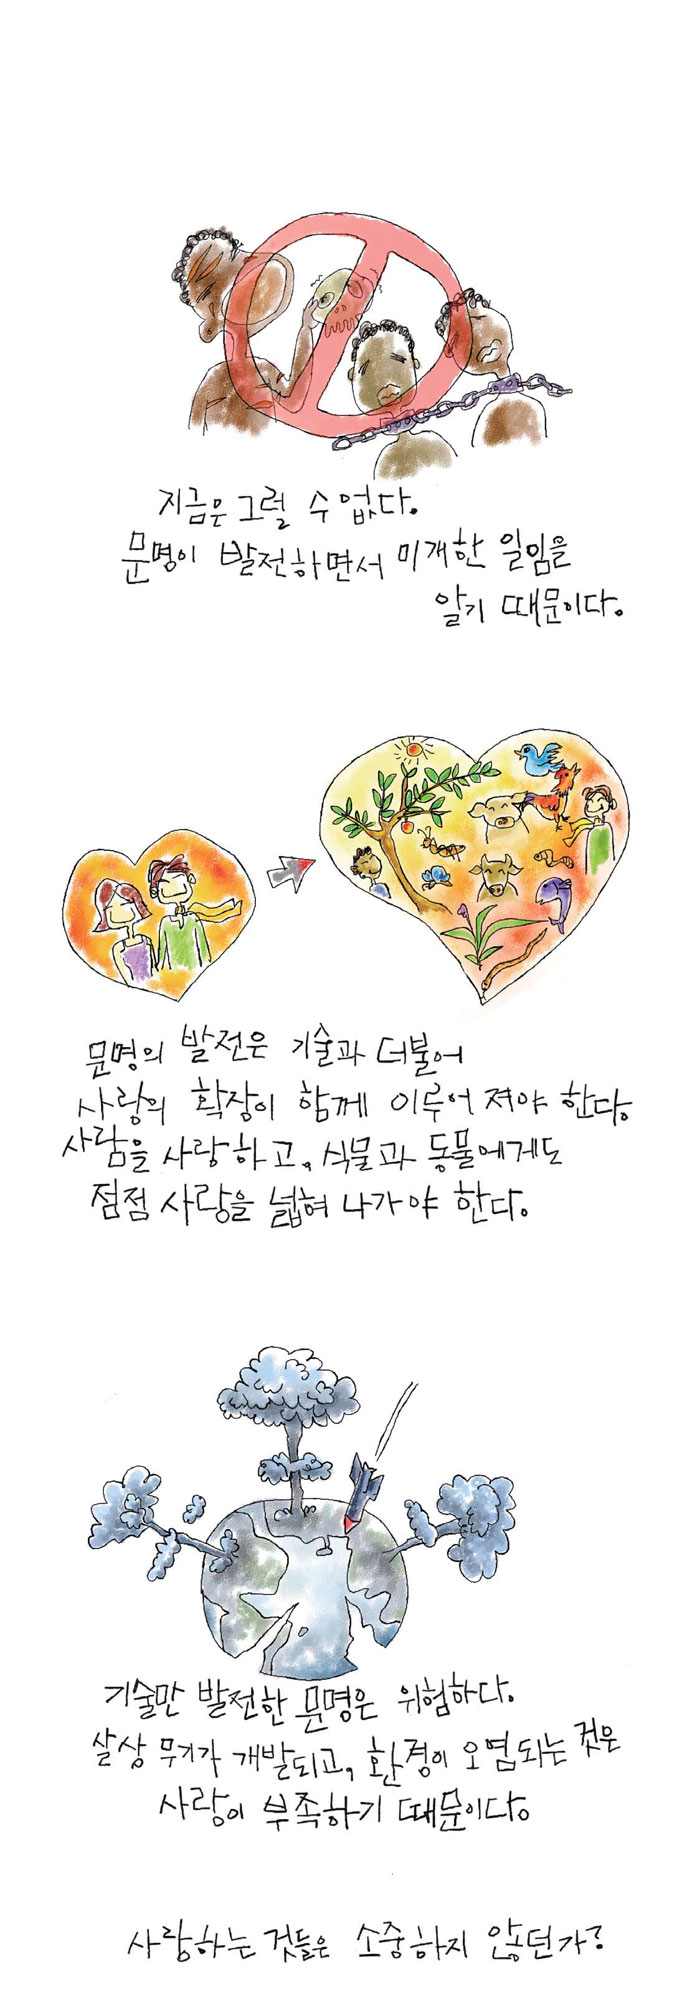 지금은 그럴 수 없다.
문명이 발전하면서 미개한 일임을
알기 때문이다.
문명의 발전은 기술과 더불어
사랑의 확장이 함께 이루어 져야 한다.
사람을 사랑하고, 식물과 동물에게도
점점 사랑을 넓혀 나가야 한다.
기술만 발전한 문명은 위험하다.
살상 무기가 개발되고, 환경이 오염되는 것은
사랑이 부족하기 때문이다.
사랑하는 것들은 소중하지 않던가?